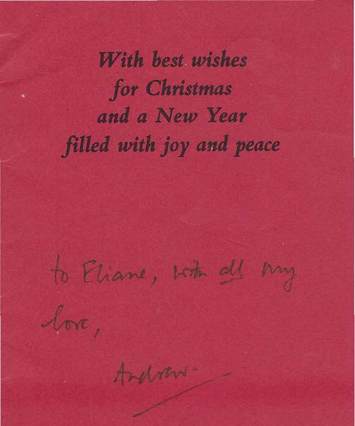 With best wishes
for Christmas
and a New Year
filled with joy and peace
to Eliane, with all my
love,
Andrew.